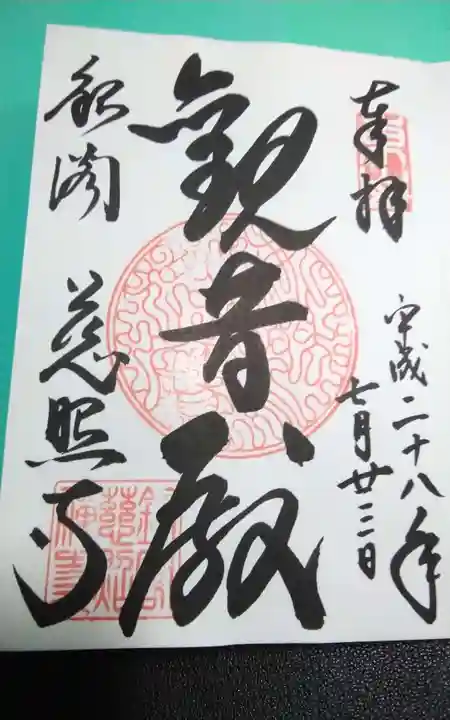 奉拝
平成二十八年
七月廿二日
觀音殿
銀閣 慈照寺